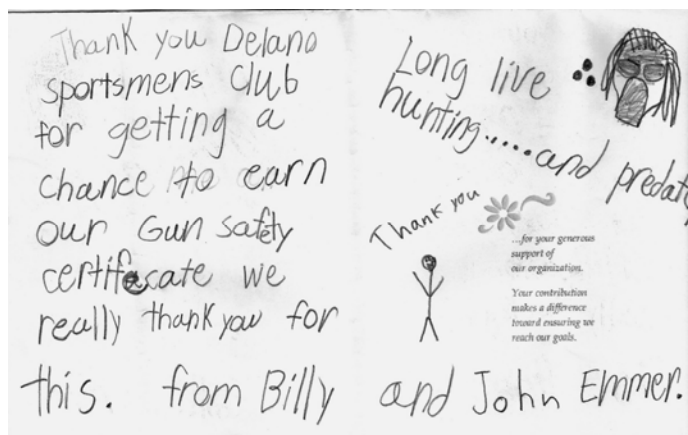 Thank you Delano
sportsmens Club
for getting a
chance to earn
our Gun safty
certifacate we
really thank you for
this. from Billy and John Emmer.
Long live
hunting.....and predat
Thank you
...for your generous
support of
our organization.
Your contribution
makes a difference
toward ensuring we
reach our goals.